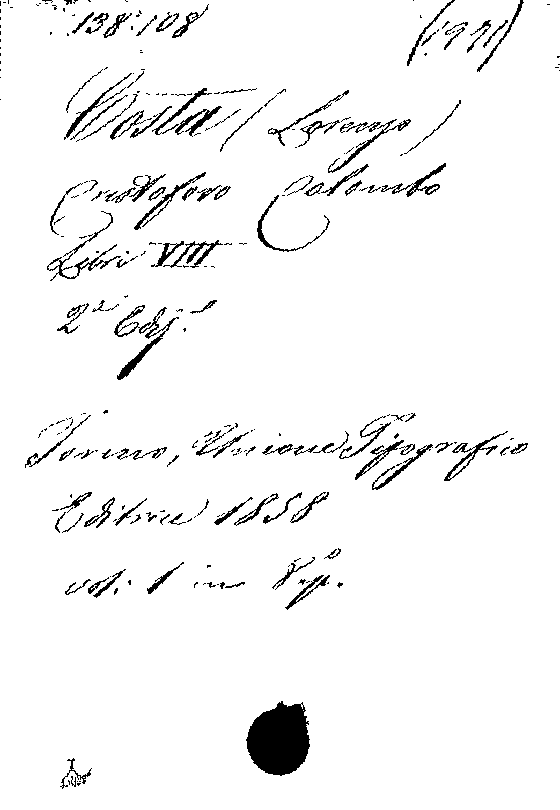 138:108
(1991)
Costa (Lorenzo)
Cristoforo Colombo
Libri VIII
2ª Ediz.e
Torino, Unione Tipografico
Editrice 1858
vol: 1 in 8º p.